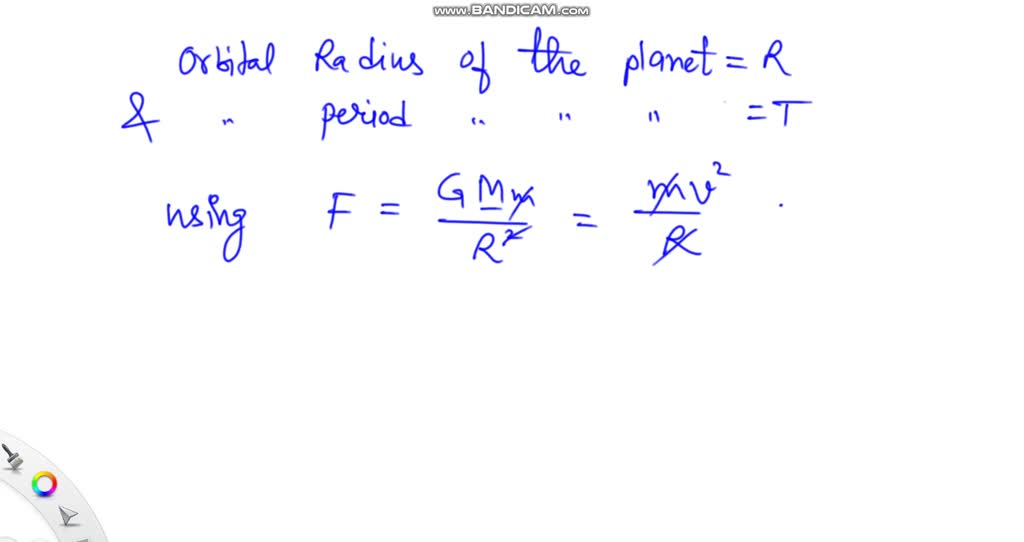 www.BANDICAM.com
Orbital Radius of the planet = R
& " period " " " = T
using F = GMm/R² = mv²/R